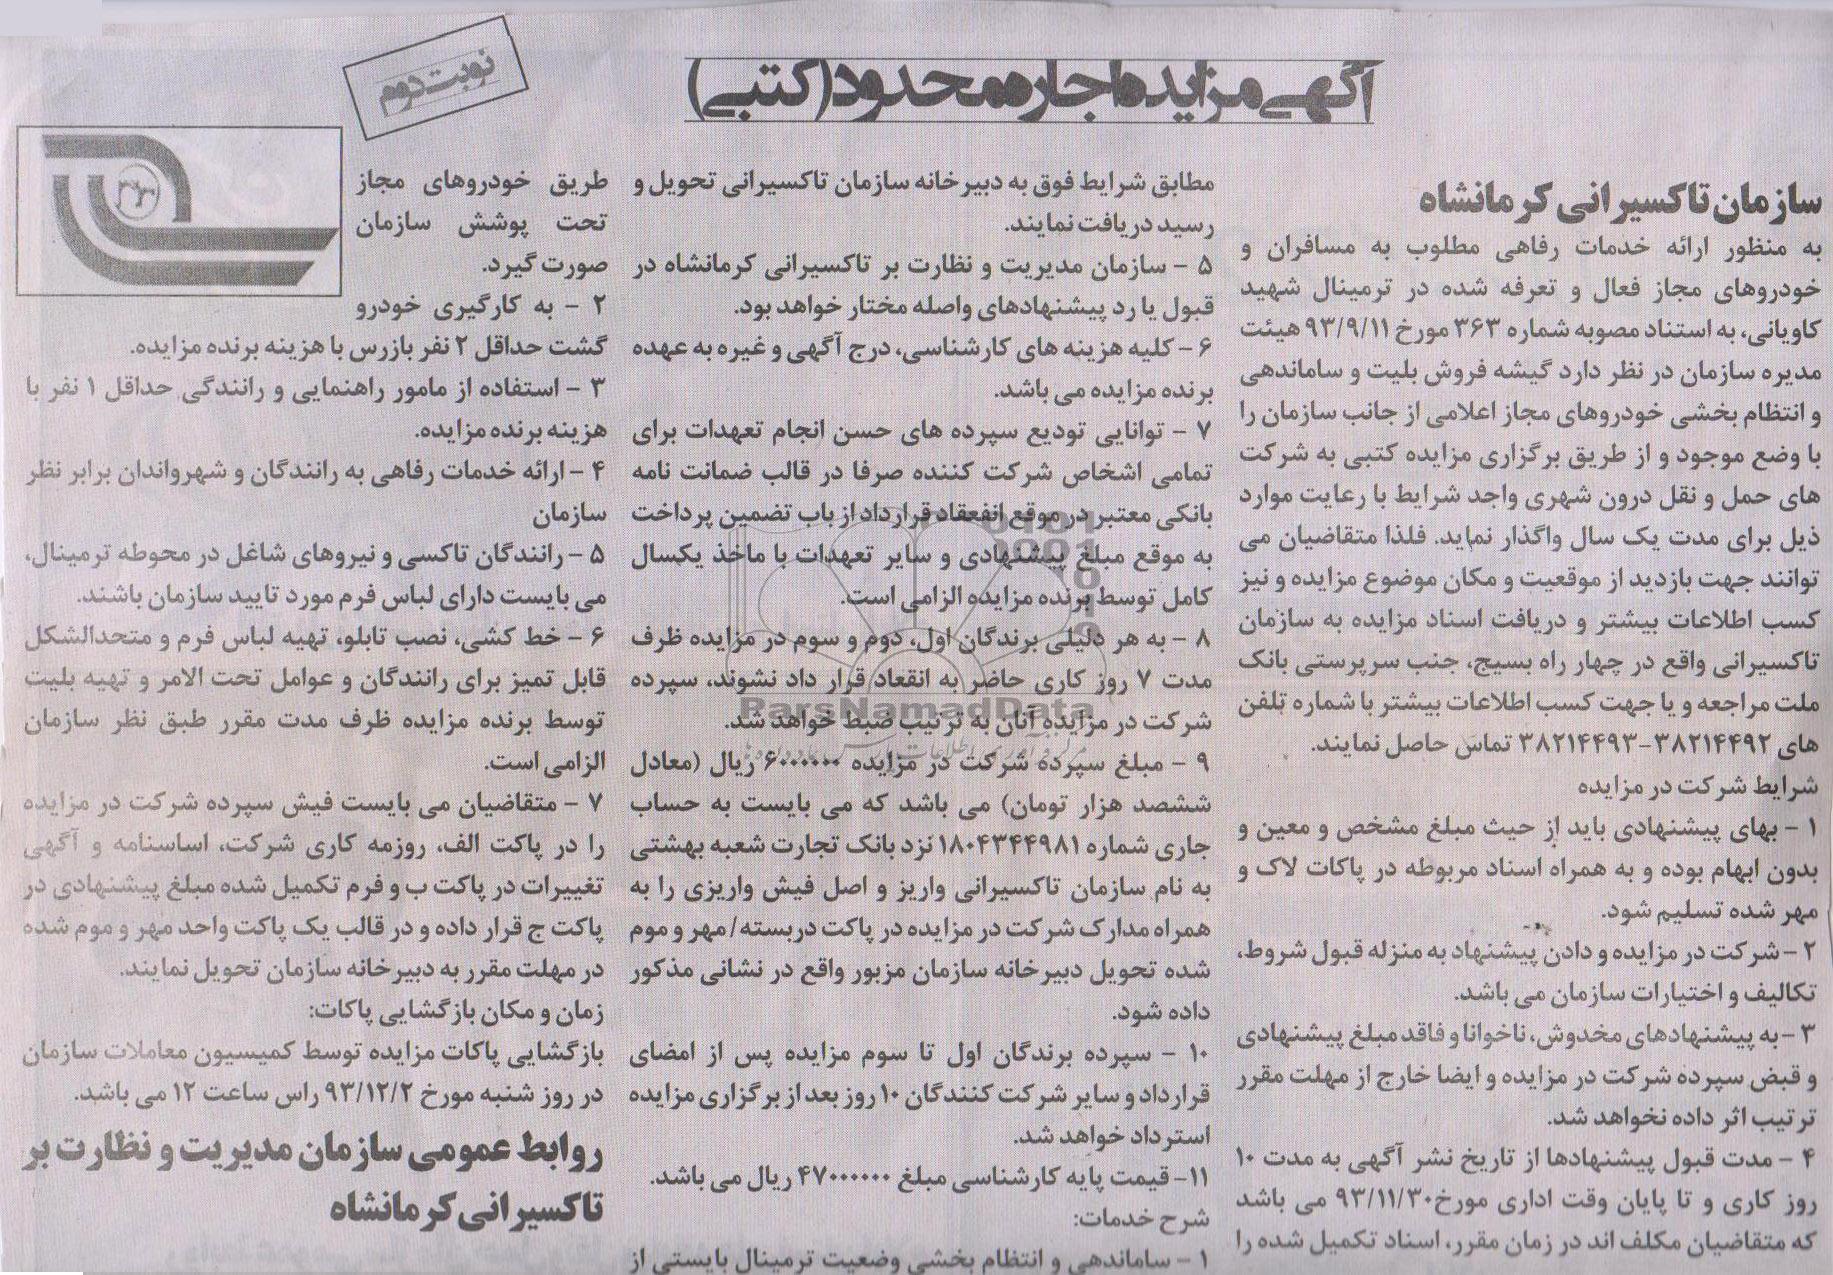 آگهی مزایده اجاره محدود (کتبی)
نوبت دوم
سازمان تاکسیرانی کرمانشاه
به منظور ارائه خدمات رفاهی مطلوب به مسافران و
خودروهای مجاز فعال و تعرفه شده در ترمینال شهید
کاویانی، به استناد مصوبه شماره ۳۶۳ مورخ ۹۳/۹/۱۱ هیئت
مدیره سازمان در نظر دارد گیشه فروش بلیت و ساماندهی
و انتظام بخشی خودروهای مجاز اعلامی از جانب سازمان را
با وضع موجود و از طریق برگزاری مزایده کتبی به شرکت
های حمل و نقل درون شهری واجد شرایط با رعایت موارد
ذیل برای مدت یک سال واگذار نماید. فلذا متقاضیان می
توانند جهت بازدید از موقعیت و مکان موضوع مزایده و نیز
کسب اطلاعات بیشتر و دریافت اسناد مزایده به سازمان
تاکسیرانی واقع در چهار راه بسیج، جنب سرپرستی بانک
ملت مراجعه و یا جهت کسب اطلاعات بیشتر با شماره تلفن
های ۳۸۲۱۴۴۹۲-۳۸۲۱۴۴۹۳ تماس حاصل نمایند.
شرایط شرکت در مزایده
۱ - بهای پیشنهادی باید از حیث مبلغ مشخص و معین و
بدون ابهام بوده و به همراه اسناد مربوطه در پاکات لاک و
مهر شده تسلیم شود.
۲ - شرکت در مزایده و دادن پیشنهاد به منزله قبول شروط،
تکالیف و اختیارات سازمان می باشد.
۳ - به پیشنهادهای مخدوش، ناخوانا و فاقد مبلغ پیشنهادی
و قبض سپرده شرکت در مزایده و ایضا خارج از مهلت مقرر
ترتیب اثر داده نخواهد شد.
۴ - مدت قبول پیشنهادها از تاریخ نشر آگهی به مدت ۱۰
روز کاری و تا پایان وقت اداری مورخ ۹۳/۱۱/۳۰ می باشد
که متقاضیان مکلف اند در زمان مقرر، اسناد تکمیل شده را
مطابق شرایط فوق به دبیرخانه سازمان تاکسیرانی تحویل و
رسید دریافت نمایند.
۵ - سازمان مدیریت و نظارت بر تاکسیرانی کرمانشاه در
قبول یا رد پیشنهادهای واصله مختار خواهد بود.
۶ - کلیه هزینه های کارشناسی، درج آگهی و غیره به عهده
برنده مزایده می باشد.
۷ - توانایی تودیع سپرده های حسن انجام تعهدات برای
تمامی اشخاص شرکت کننده صرفا در قالب ضمانت نامه
بانکی معتبر در موقع انفعقاد قرارداد از باب تضمین پرداخت
به موقع مبلغ پیشنهادی و سایر تعهدات با ماخذ یکسال
کامل توسط برنده مزایده الزامی است.
۸ - به هر دلیلی برندگان اول، دوم و سوم در مزایده ظرف
مدت ۷ روز کاری حاضر به انعقاد قرار داد نشوند، سپرده
شرکت در مزایده آنان به ترتیب ضبط خواهد شد.
ParsNamadData
۹ - مبلغ سپرده شرکت در مزایده ۶۰۰۰۰۰۰ ریال (معادل
ششصد هزار تومان) می باشد که می بایست به حساب
جاری شماره ۱۸۰۴۳۴۴۹۸۱ نزد بانک تجارت شعبه بهشتی
به نام سازمان تاکسیرانی واریز و اصل فیش واریزی را به
همراه مدارک شرکت در مزایده در پاکت دربسته/ مهر و موم
شده تحویل دبیرخانه سازمان مزبور واقع در نشانی مذکور
داده شود.
۱۰ - سپرده برندگان اول تا سوم مزایده پس از امضای
قرارداد و سایر شرکت کنندگان ۱۰ روز بعد از برگزاری مزایده
استرداد خواهد شد.
۱۱- قیمت پایه کارشناسی مبلغ ۴۷۰۰۰۰۰۰ ریال می باشد.
شرح خدمات:
۱ - ساماندهی و انتظام بخشی وضعیت ترمینال بایستی از
طریق خودروهای مجاز
تحت پوشش سازمان
صورت گیرد.
۲ - به کارگیری خودرو
گشت حداقل ۲ نفر بازرس با هزینه برنده مزایده.
۳ - استفاده از مامور راهنمایی و رانندگی حداقل ۱ نفر با
هزینه برنده مزایده.
۴ - ارائه خدمات رفاهی به رانندگان و شهرواندان برابر نظر
سازمان
۵ - رانندگان تاکسی و نیروهای شاغل در محوطه ترمینال،
می بایست دارای لباس فرم مورد تایید سازمان باشند.
۶ - خط کشی، نصب تابلو، تهیه لباس فرم و متحدالشکل
قابل تمیز برای رانندگان و عوامل تحت الامر و تهیه بلیت
توسط برنده مزایده ظرف مدت مقرر طبق نظر سازمان
الزامی است.
۷ - متقاضیان می بایست فیش سپرده شرکت در مزایده
را در پاکت الف، روزمه کاری شرکت، اساسنامه و آگهی
تغییرات در پاکت ب و فرم تکمیل شده مبلغ پیشنهادی در
پاکت ج قرار داده و در قالب یک پاکت واحد مهر و موم شده
در مهلت مقرر به دبیرخانه سازمان تحویل نمایند.
زمان و مکان بازگشایی پاکات:
بازگشایی پاکات مزایده توسط کمیسیون معاملات سازمان
در روز شنبه مورخ ۹۳/۱۲/۲ راس ساعت ۱۲ می باشد.
روابط عمومی سازمان مدیریت و نظارت بر
تاکسیرانی کرمانشاه